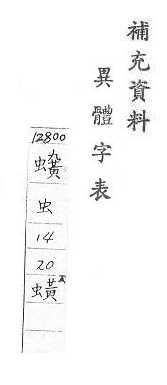 補充資料
異體字表
12800
虫
14
20
蟥